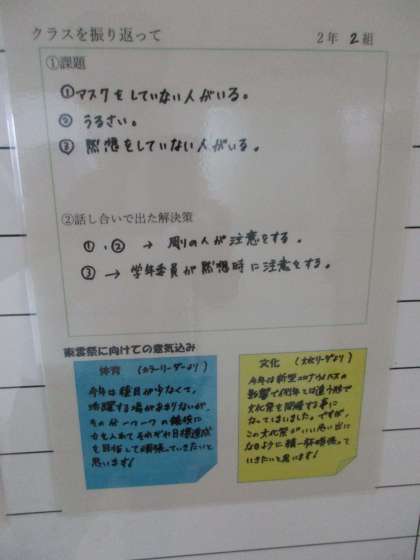 クラスを振り返って
2年 2組
①課題
①マスクをしていない人がいる。
②うるさい。
③黙想をしていない人がいる。
②話し合いで出た解決策
①、② → 周りの人が注意をする。
③ → 学年委員が黙想時に注意をする。
東雲祭に向けての意気込み
体育 (カラーリーダーより)
今年は種目が少なくて、
活躍する場があまりないが、
その分一つ一つの競技に
力を入れてそれぞれ目標達成
を目指して頑張っていきたいと
思います!
文化 (文化リーダより)
今年は新型コロナウイルスの
影響で例年とは違う形で
文化祭を開催する事に
なってしまいました。ですが、
この文化祭がいい思い出に
なるように精一杯頑張って
いきたいと思います!